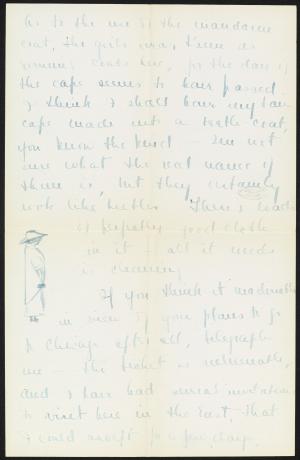 As to the use of the mandarin
coat, the girls wear them as
evening coats here, for the day of
the cape seems to have passed.
I think I shall have my tan
cape made into a coat,
you know the kind — I'm not
sure what the real name of
them is, but they certainly
look like beetles. There's loads
of perfectly good cloth
in it — all it needs
is cleaning.
If you think it inadvisable
in view of your plans to go
to Chicago after all, telegraph
me — The ticket is returnable,
and I have had several invitations
to visit here in the East, that
I could accept for a few days.